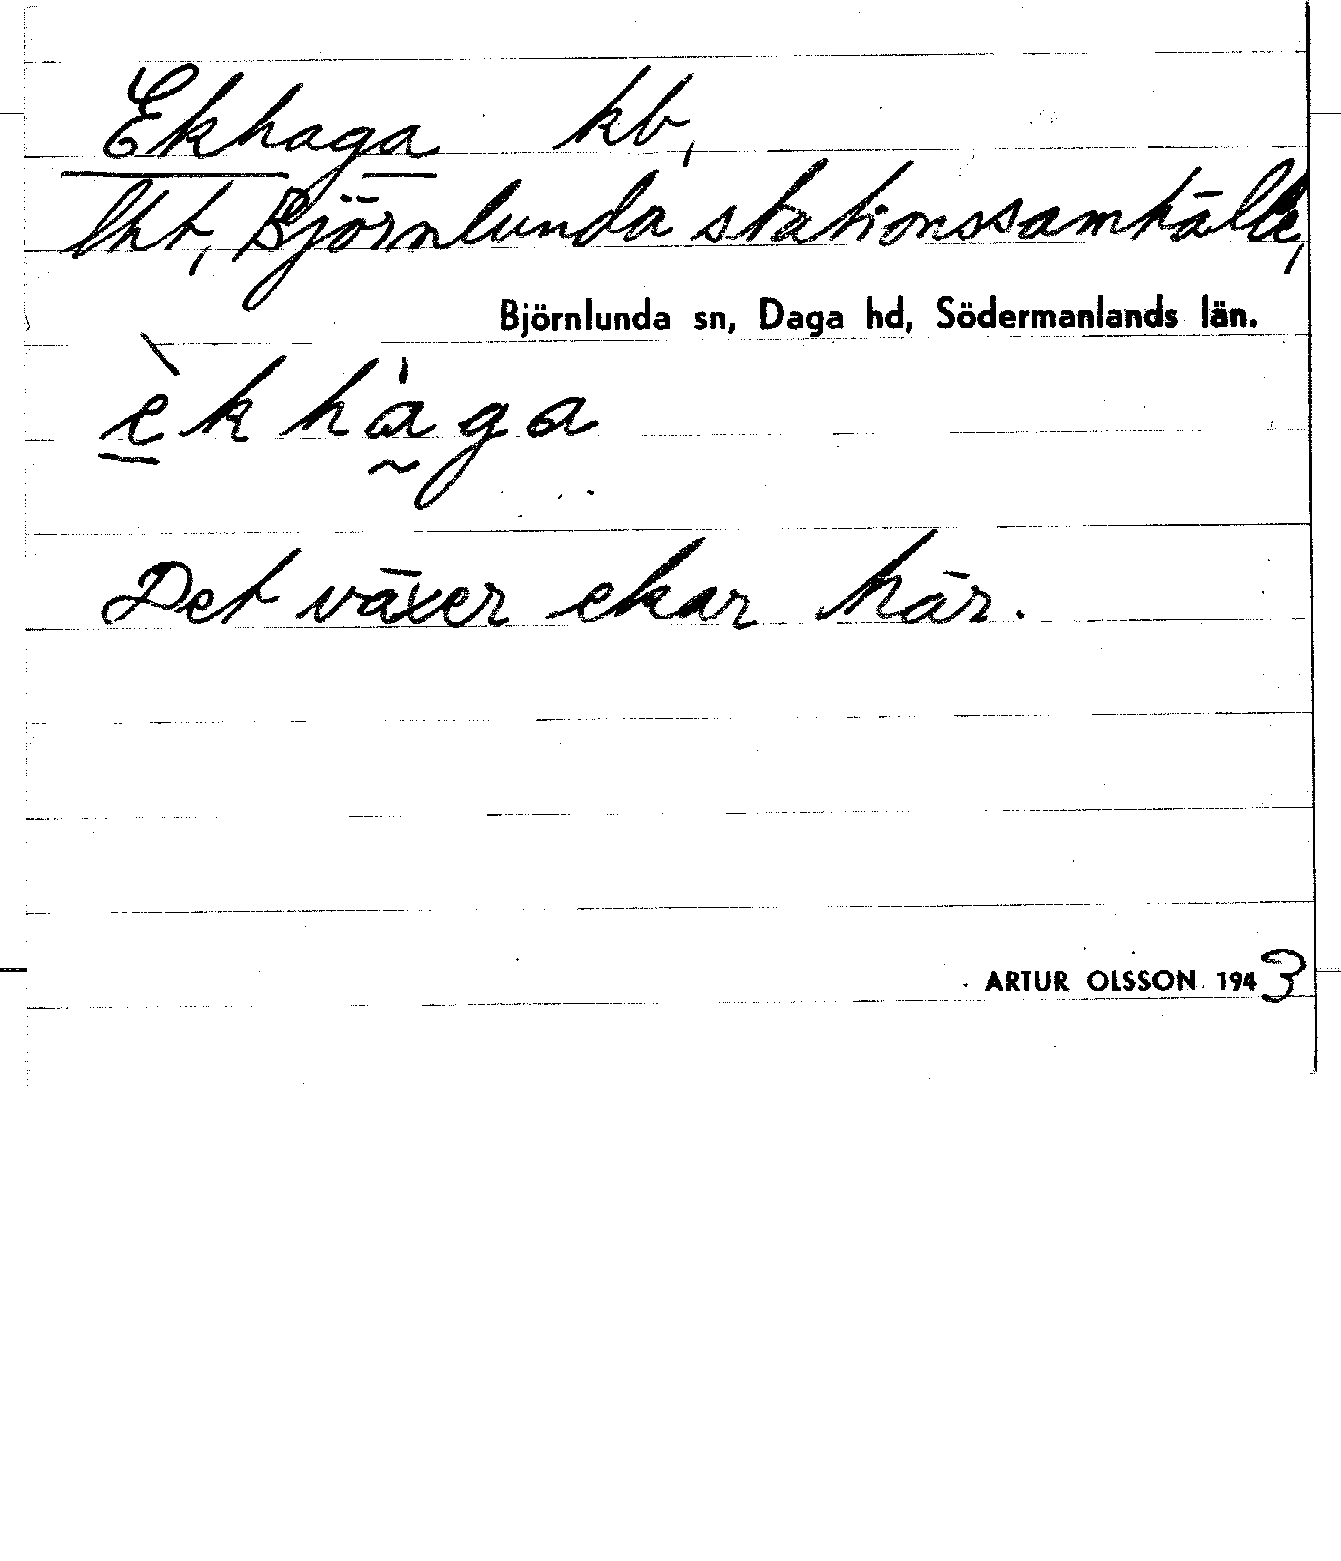 Ekhaga kb,
lht, Björnlunda stationssamhälle,
Björnlunda sn, Daga hd, Södermanlands län.
èkhàga
Det växer ekar här.
ARTUR OLSSON 1943